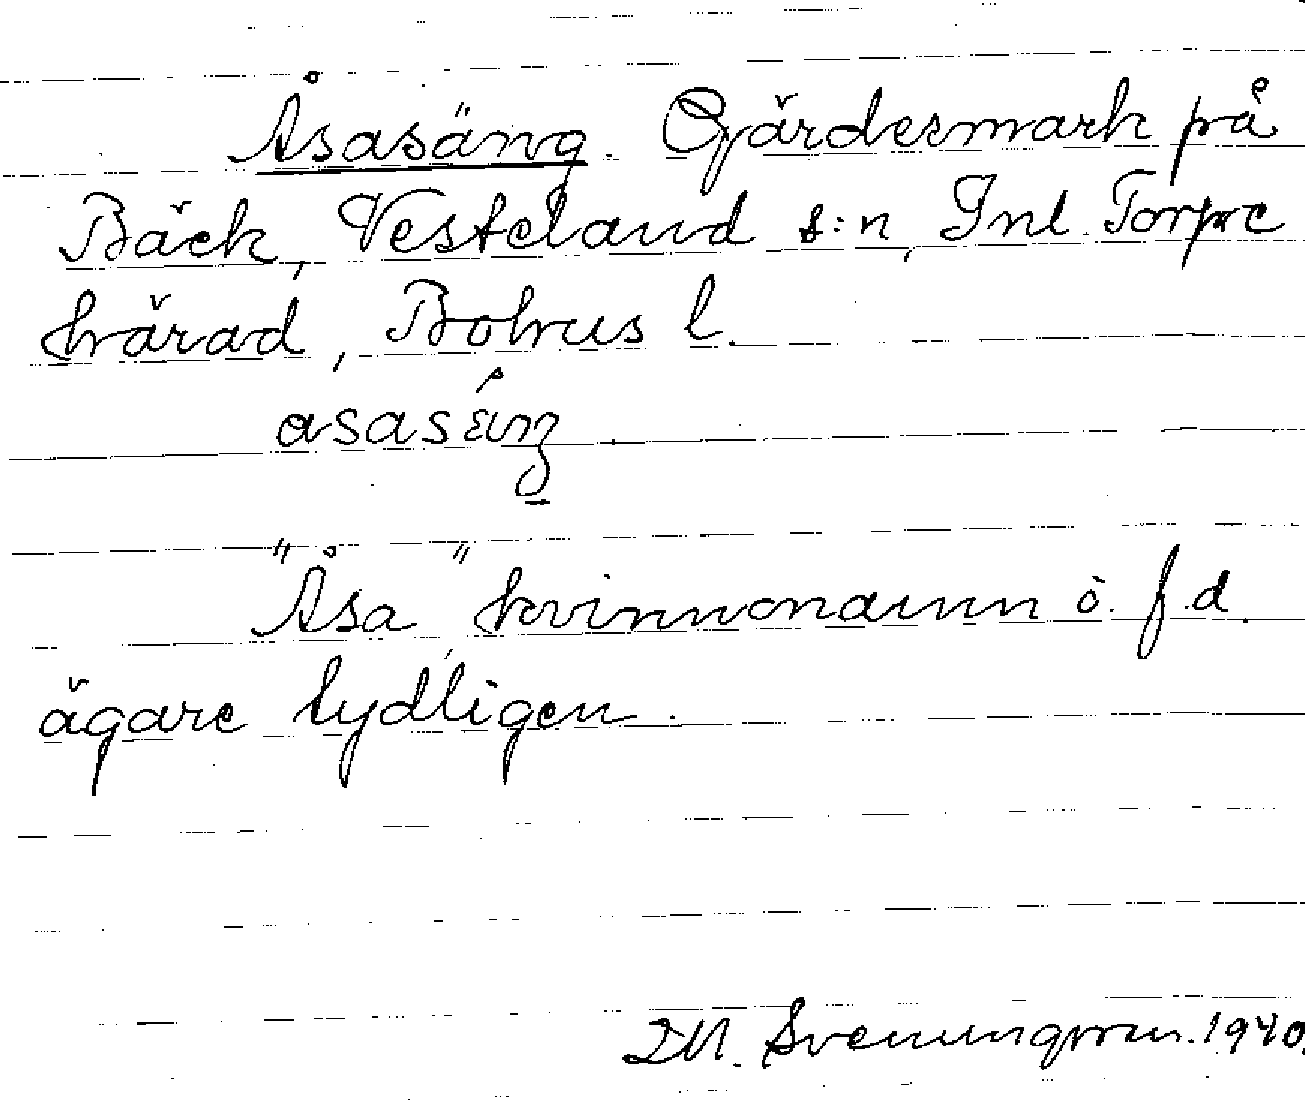 Åsasäng. Gärdesmark på
Bäck, Vesteland s:n, Inl. Torpe
härad, Bohus l.
asasäŋ
"Åsa" kvinnonamn o. f.d.
ägare tydligen.
M. Svenungsson. 1940.